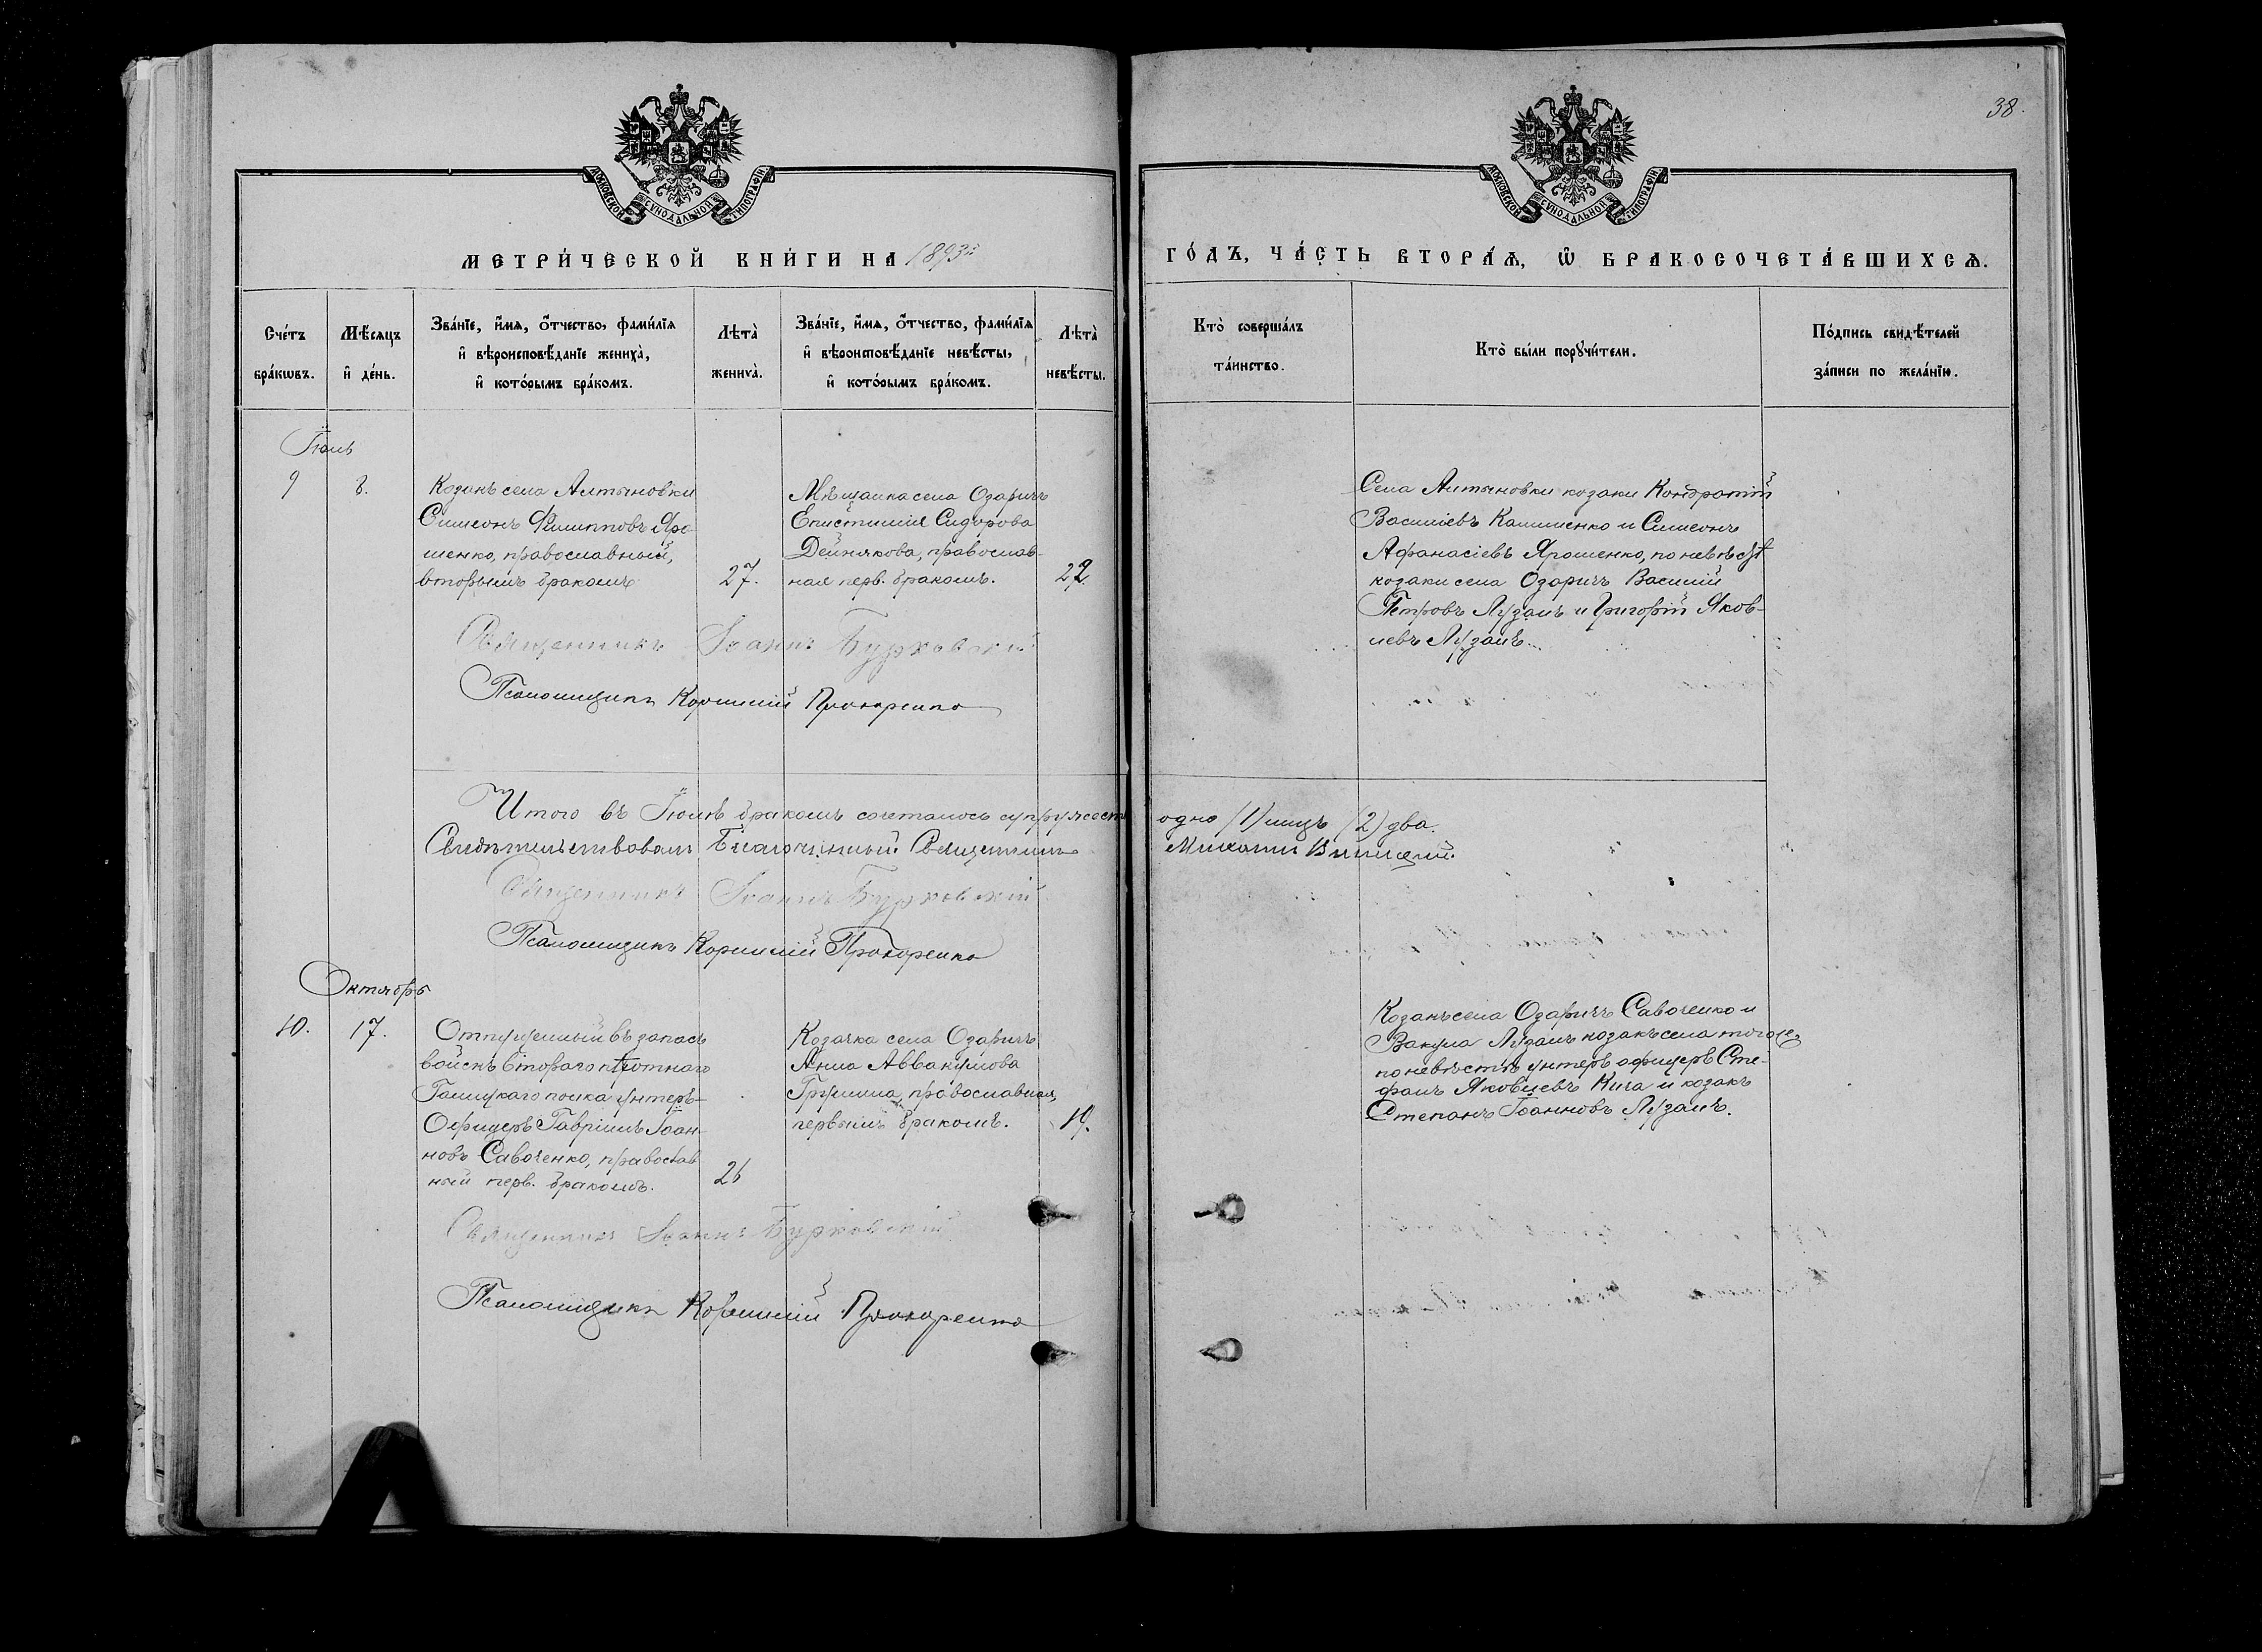 38.
МОСКОВСКОЙ СѴНОДАЛЬНОЙ ТИПОГРАФІИ
МОСКОВСКОЙ СѴНОДАЛЬНОЙ ТИПОГРАФІИ
МЕТРИ́ЧЕСКОЙ КНИ́ГИ НА 1893й
ГО́ДЪ, ЧА́СТЬ ВТОРА́Ѧ, Ѡ҆ БРАКОСОЧЕТА́ВШИХСѦ.
Сче́тъ
бра́кѡвъ.
Мѣ́сѧцъ
и҆ де́нь.
Зва́нїе, и҆́мѧ, ѻ҆́тчество, фами́лїѧ
и҆ вѣроисповѣ́данїе жениха̀,
и҆ кото́рымъ бра́комъ.
Лѣта̀
жениха̀.
Зва́нїе, и҆́мѧ, ѻ҆́тчество, фами́лїѧ
и҆ вѣроисповѣ́данїе невѣ́сты,
и҆ кото́рымъ бра́комъ.
Лѣта̀
невѣ́сты.
Кто̀ соверша́лъ
та́инство.
Кто̀ бы́ли порꙋчи́тели.
По́дпись свидѣ́телей
за́писи по жела́нїю.
9
8.
Козакъ села Алтыновки
Симеонъ Филипповъ Яро-
шенко, православный,
вторымъ бракомъ
27.
Мѣщанка села Озаричъ
Епистимія Сидорова
Дейнякова, православ-
ная перв. бракомъ.
22
Села Алтыновки козаки Кондратій
Василіевъ Калиненко и Симеонъ
Афанасіевъ Ярошенко, по невѣстѣ
козаки села Озаричъ Василій
Петровъ Лузанъ и Григорій Яков-
левъ Лузанъ.
Священникъ Іоаннъ Бурковскій
Псаломщикъ Корнилій Прохоренко
Итого въ Іюлѣ бракомъ сочеталось супружествъ одно (1) лицъ (2) два.
Свидѣтельствовалъ Благочинный Священникъ
Священникъ Іоаннъ Бурковскій
Псаломщикъ Корнилій Прохоренко
Октябрь
10.
17.
Отпущенный въ запасъ
войскъ втораго пѣхотнаго
Галицкаго полка унтеръ-
Офицеръ Гавріилъ Іоан-
новъ Савоченко, православ
ный перв. бракомъ.
26
Козачка села Озаричъ
Анна Аввакумова
православная,
первымъ бракомъ.
19.
Козакъ села Озаричъ Савоченко и
Вакула Лузанъ козакъ села тогоже,
по невѣстѣ унтеръ офицеръ Сте-
фанъ Яковлевъ Кича и козакъ
Степанъ Іоанновъ Лузанъ.
Священникъ Іоаннъ Бурковскій
Псаломщикъ Корнилій Прохоренко